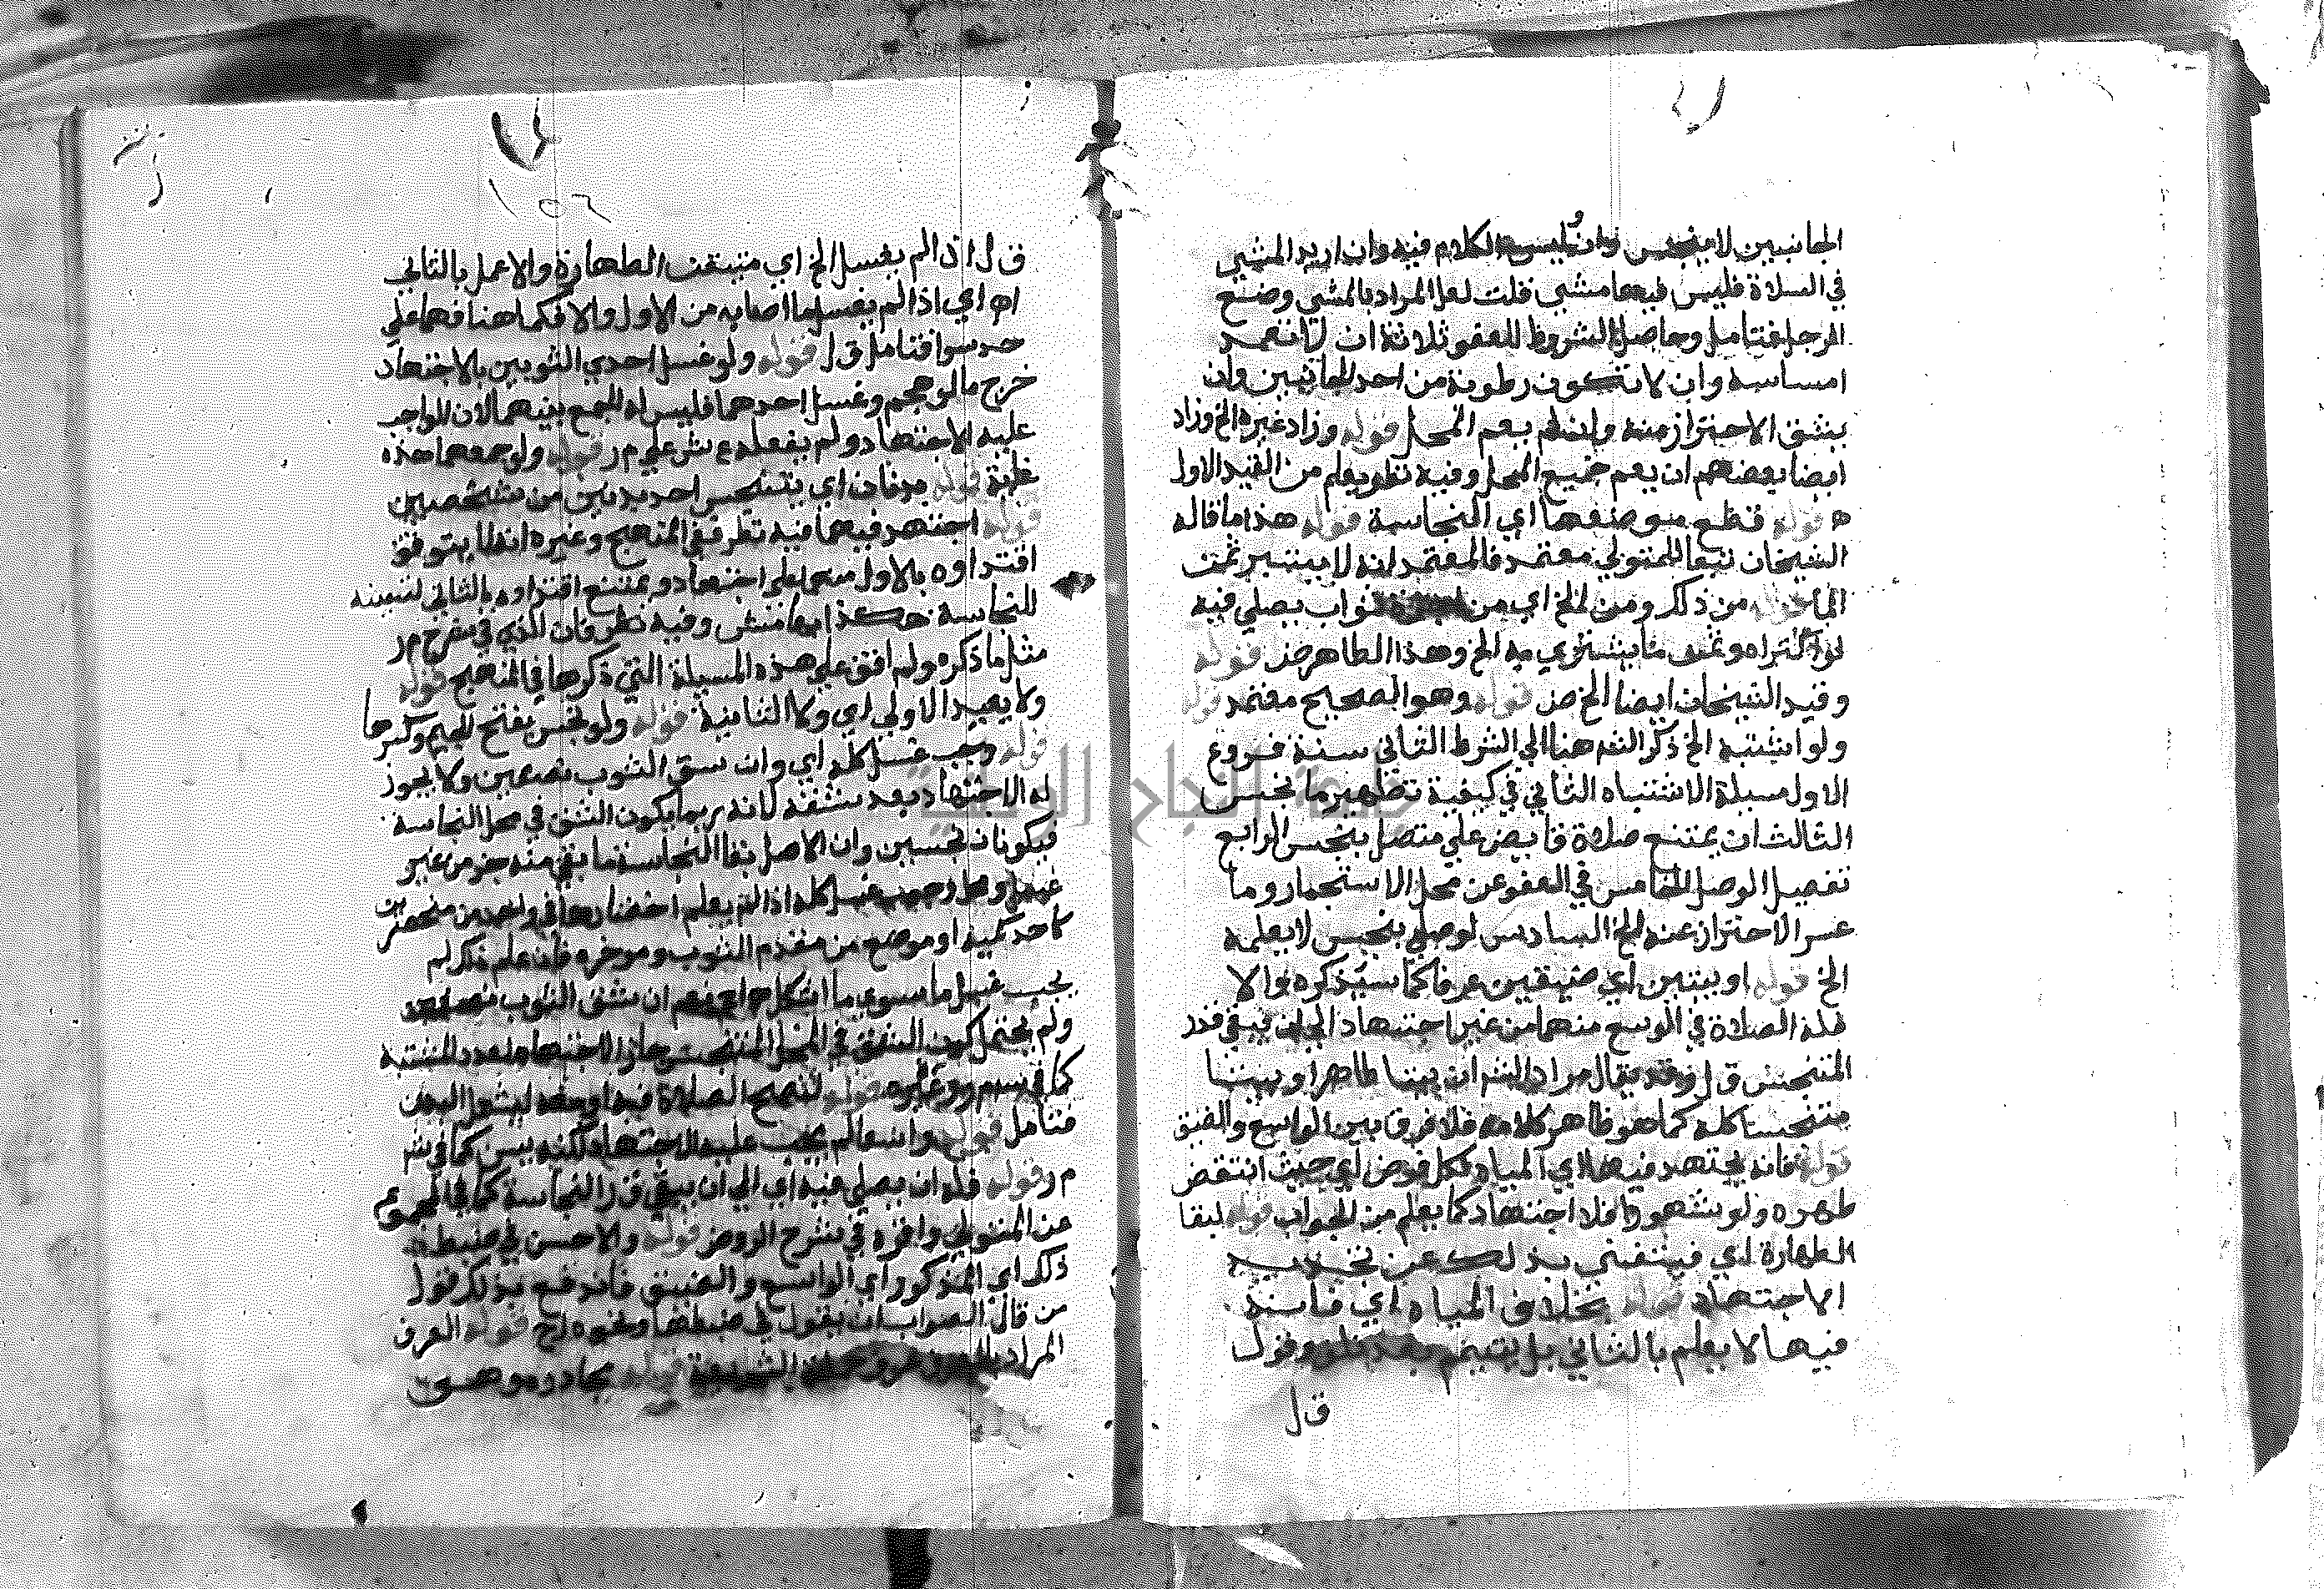 الجانبين لا ينجس وان يبس الكلام فيه وان اريد المشي
في الصلاة فليس فيها مشي قلت لعل المراد بالمشي وضع
الرجل فتامل وحاصل الشروط للعفو ثلاثة ان لا يتعمد
امساسه وان لا تكون رطوبة من احد الجانبين وان
يشق الاحتراز منه وان لم يعم المحل قوله وزاد غيره الخ وزاد
ايضا بعضهم ان يعم جميع المحل وفيه نظر يعلم من القيد الاول
ه قوله قطع موضعها اي النجاسة قوله هذا ما قاله
الشيخان تبعا للمتولي معتمد فالمعتمد انه لا يعتبر ثمن
الما قوله من ذلك ومن الخ اي من ثواب يصلي فيه
لو اكتراه وثمن ما يشتري به الخ وهذا الظاهر ض قوله
وقيد الشيخان ايضا الخ ض قوله وهو الصحيح معتمد قوله
ولو اشتبه الخ ذكر الشم هنا الي الشرط الثاني ستة فروع
الاول مسيلة الاشتباه الثاني في كيفية تطهير ما نجس
الثالث ان يمتنع صلاة قابض علي متصل بنجس الرابع
تفصيل الوصل الخامس في العفو عن محل الاستجمار وما
عسر الاحتراز عنه الخ السادس لو صلي بنجس لا يعلمه
الخ قوله او بيتين اي ضيقين عرفا كما سيذكره والا
فله الصلاة في الوسع منهما من غير اجتهاد الي ان يبقي قدر
المتنجس ق ل وقد يقال مراد الشم ان بيتا طاهرا وبيتا
متنجسا كله كما هو ظاهر كلامه فلا فرق بين الواسع والضيق
قوله فانه يجتهد فيها اي المياه لكل فرض اي حيث انتقض
طهره ولو شهورا فلا اجتهاد كما يعلم من الجواب قوله لبقا
الطهارة اي فيستغني بذلك عن تجديد
الاجتهاد قوله بخلاف المياه اي فانه
فيها لا يعلم بالثاني بل يتيمم وقول
ق ل
ق ل اذا لم يغسل الخ اي متيقن الطهارة والا عمل بالثاني
اه اي اذا لم يغسل ما اصابه من الاول والا فكما هنا فهما علي
حد سوا فتامل ق ل قوله ولو غسل احدي الثوبين بالاجتهاد
خرج ما لو هجم وغسل احدهما فليس له الجمع بينهما لان الواجب
عليه الاجتهاد ولم يفعله ع ش علي م ر قوله ولو جمعهما هذه
غاية قوله بدنان اي يتنجس احد بدنين من شخصين
قوله اجتهد فيهما فيه نظر ففي المنهج وغيره انما يتوقف
اقتداوه بالاول منهما علي اجتهاد ويمتنع اقتداوه بالثاني لتعينه
للنجاسة هكذا وفيه نظر فان الذي في شرح م ر
مثل ما ذكره ولم اقف علي هذه المسيلة التي ذكرها في المنهج قوله
ولا يعيد الاولي اي ولا الثانية قوله ولو نجس بفتح الجيم وكسرها
قوله وجب غسل كله اي وان شق الثوب نصفين ولا يجوز
له الاجتهاد بعد شقه لانه ربما يكون الشق في محل النجاسة
فيكونان نجسين وان الاصل بقا النجاسة ما بقي منه جز من غير
غسل ومحل وجوب غسل كله اذا لم يعلم انحصارها في واحد من منحصرين
كاحد كميه او موضع من مقدم الثوب وموخره فان علم ذلك لم
يجب غسل ما سوي ما اشكل نعم ان شق الثوب نصفين
ولم يحتمل كون الشق في المحل المتنجس جاز الاجتهاد لتعدد المشتبه
كما في قوله لتصح الصلاة فيه او معه ليشمل البدن
فتامل قوله وانما لم يجب عليه الاجتهاد لكنه يسن كما في شر
م ر قوله فله ان يصلي فيه اي الي ان يبقي قدر النجاسة كما في المجموع
عن المتولي واقره في شرح الروض قوله والاحسن في ضبط
ذلك اي المذكور اي الواسع والضيق فاندفع بذلك قول
من قال الصواب ان يقول في ضبطهما ونحوه لخ قوله العرف
المراد قوله محاد وموضع